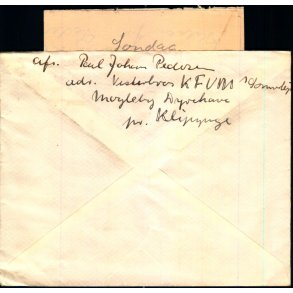 Søndag
afs. Poul Johan Pedersen
adr. Vesterbros KFUM's
Magleby Dyrehave
pr. Klippinge